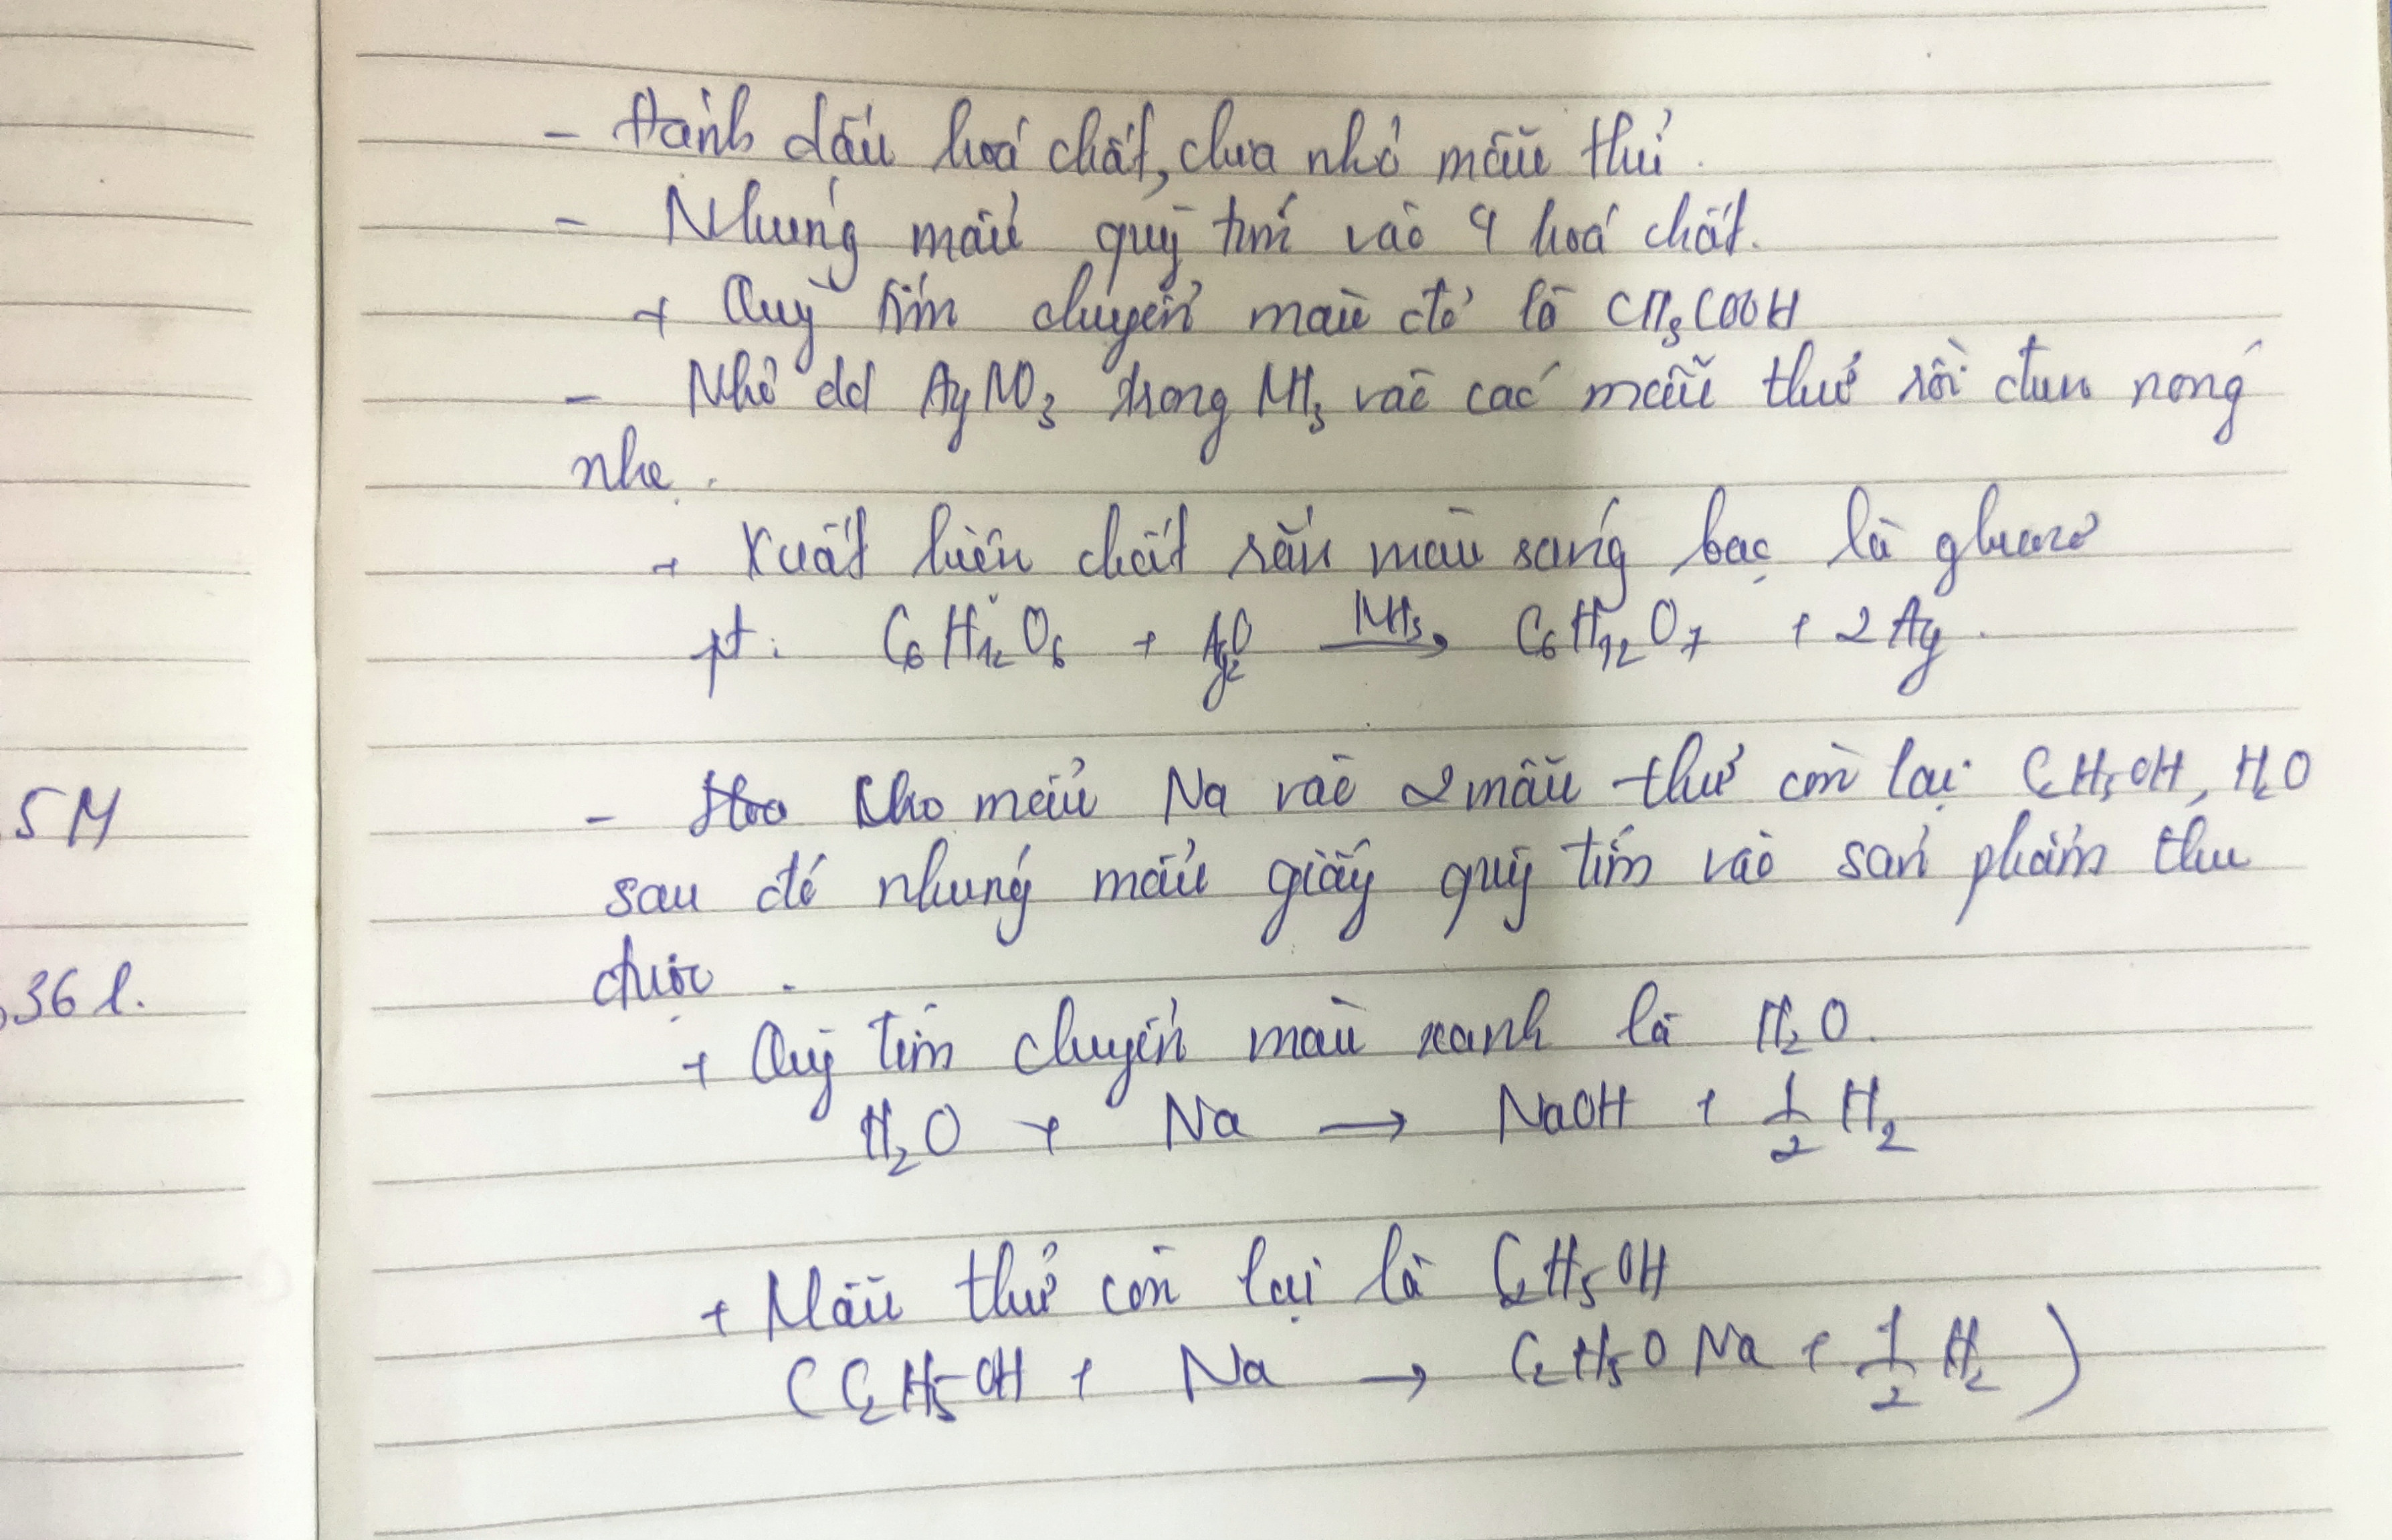 - Đánh dấu hoá chất, chia nhỏ mẫu thử.
- Nhúng mẩu quỳ tím vào 4 hoá chất.
+ Quỳ tím chuyển màu đỏ là CH₃COOH
- Nhỏ dd AgNO₃ trong NH₃ vào các mẫu thử rồi đun nóng
nhẹ.
+ Xuất hiện chất rắn màu sáng bạc là glucozơ
pt: C₆H₁₂O₆ + Ag₂O —NH₃→ C₆H₁₂O₇ + 2Ag.
5M
- Cho mẩu Na vào 2 mẫu thử còn lại C₂H₅OH, H₂O
sau đó nhúng mẩu giấy quỳ tím vào sản phẩm thu
được.
36 l.
+ Quỳ tím chuyển màu xanh là H₂O.
H₂O + Na → NaOH + 1/2 H₂
+ Mẫu thử còn lại là C₂H₅OH
(C₂H₅OH + Na → C₂H₅ONa + 1/2 H₂)